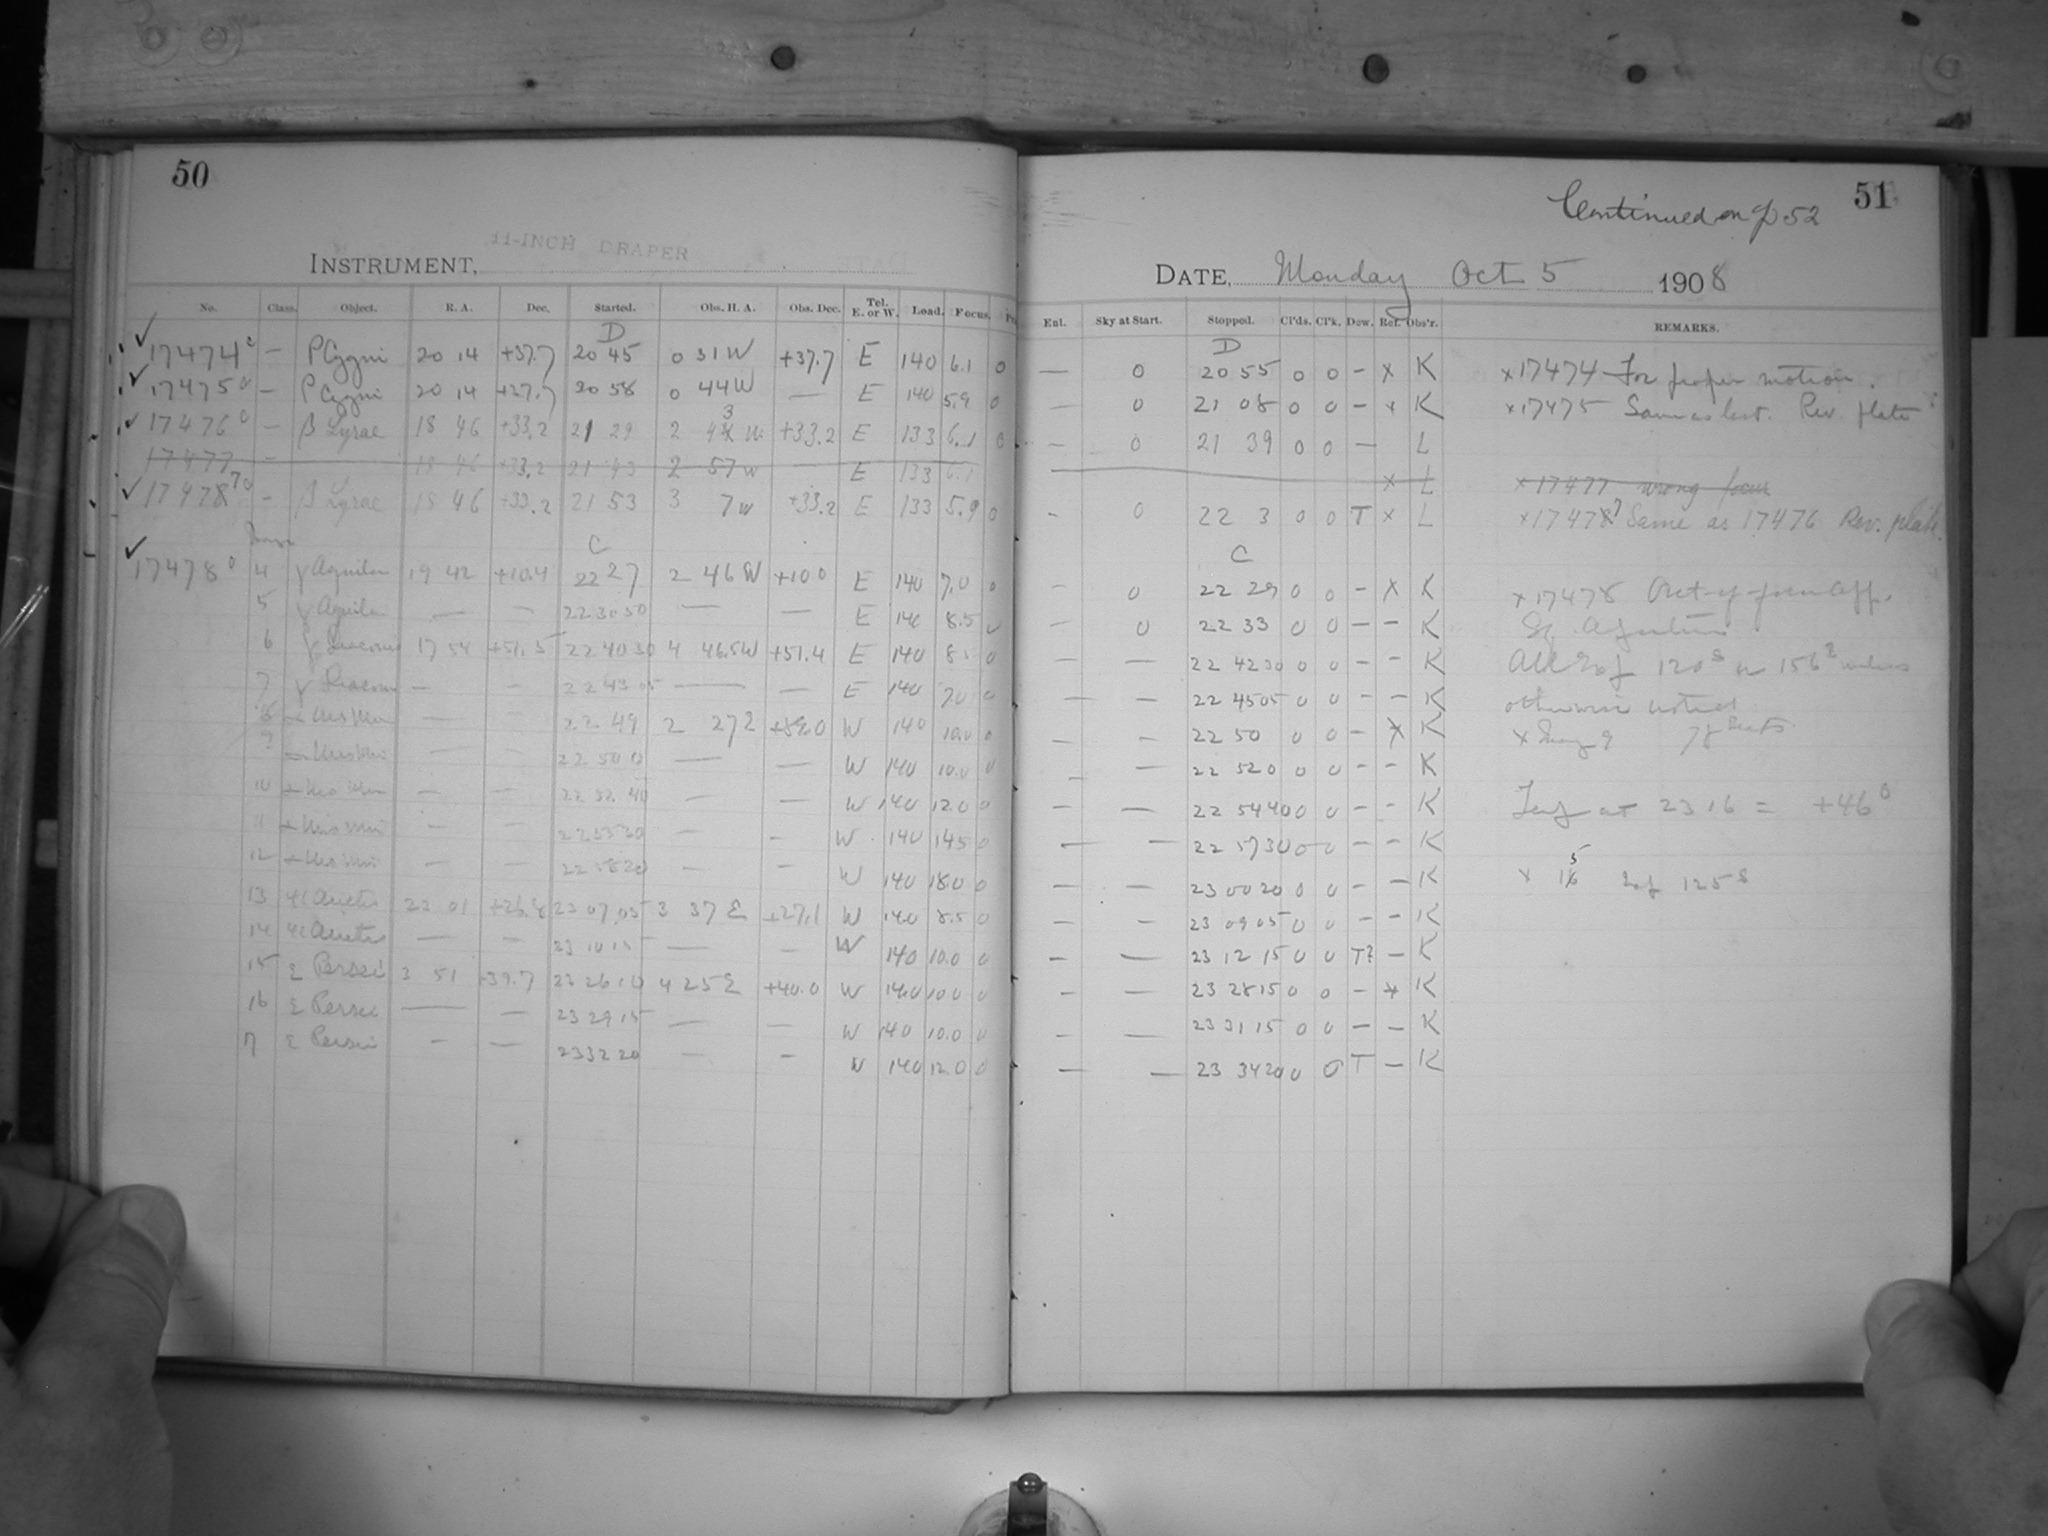 50
11-INCH DRAPER
INSTRUMENT,
No. Class. Object. R. A. Dec. Started. Obs. H. A. Obs. Dec. Tel. E. or W. Load. Focus.
D
17474 0 — P Cygni 20 14 +37.7 20 45 0 31 W +37.7 E 140 6.1 0
17475 0 — P Cygni 20 14 +37.7 20 58 0 44 W — E 140 5.9 0
17476 0 — β Lyrae 18 46 +33.2 21 29 2 43 W +33.2 E 133 6.1 0
17477 — 18 46 +33.2 21 43 2 57 W — E 133 6.1
17478 7 0 — β Lyrae 18 46 +33.2 21 53 3 7 W +33.2 E 133 5.9 0
C
17478 0 4 γ Aquilae 19 42 +10.4 22 27 2 46 W +10 0 E 140 7.0 0
5 γ Aquilae — — 22 30 50 — — E 140 8.5 0
6 γ Draconis 17 54 +51.5 22 40 30 4 46.5 W +51.4 E 140 8.5 0
7 γ Draconis — — 22 43 05 — — E 140 7.0 0
8 22 49 2 27 W 140 10.0 0
9 — — 22 50 0 — — W 140 10.0 0
10 — — 22 52 40 — — W 140 12.0 0
11 — — 22 55 30 — — W 140 14.5 0
12 — — 22 58 20 — — W 140 18.0 0
13 Arietis 23 07.05 3 37 E +27.1 W 140 8.5 0
14 Arietis — — 23 10 15 — — W 140 10.0 0
15 ε Persei 3 51 +39.7 23 26 10 4 25 E +40.0 W 140 10.0 0
16 ε Persei — — 23 29 15 — — W 140 10.0 0
17 ε Persei — — 23 32 20 — — W 140 12.0 0
51
Continued on p 52
DATE, Monday Oct 5 1908
Ent. Sky at Start. Stopped. Cl'ds. Cl'k. Dew. Ref. Obs'r. REMARKS.
D
— 0 20 55 0 0 – x K x 17474 For proper motion.
— 0 21 08 0 0 – x K x 17475 Same as last. Rev. plate
— 0 21 39 0 0 — L
x L x 17477 wrong focus
– 0 22 3 0 0 T x L x 17478 7 Same as 17476 Rev. plate.
C
— 0 22 29 0 0 – x K x 17478 Out-of-focus
— 0 22 33 0 0 – – K
— — 22 42 30 0 0 – – K All of 120 s or 156
— — 22 45 05 0 0 – – K otherwise noted
— — 22 50 0 0 – x K x 9 78
— — 22 52 0 0 0 – – K
— — 22 54 40 0 0 – – K at 23 16 = +46 0
— — 22 57 30 0 0 – – K
— — 23 00 20 0 0 – – K x 15 125 s
— — 23 09 05 0 0 – – K
— — 23 12 15 0 0 T? – K
— — 23 28 15 0 0 – x K
— — 23 31 15 0 0 – – K
— — 23 34 20 0 0 T – K